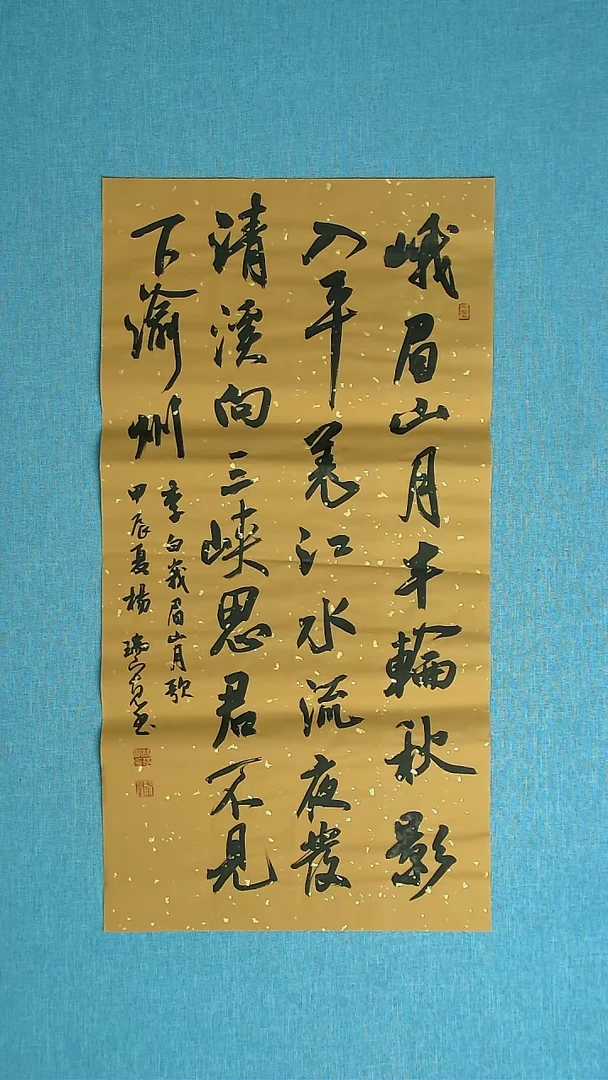 峨眉山月半輪秋影
入平羌江水流夜發
清溪向三峽思君不見
下渝州
李白峩眉山月歌
甲辰夏楊瑞